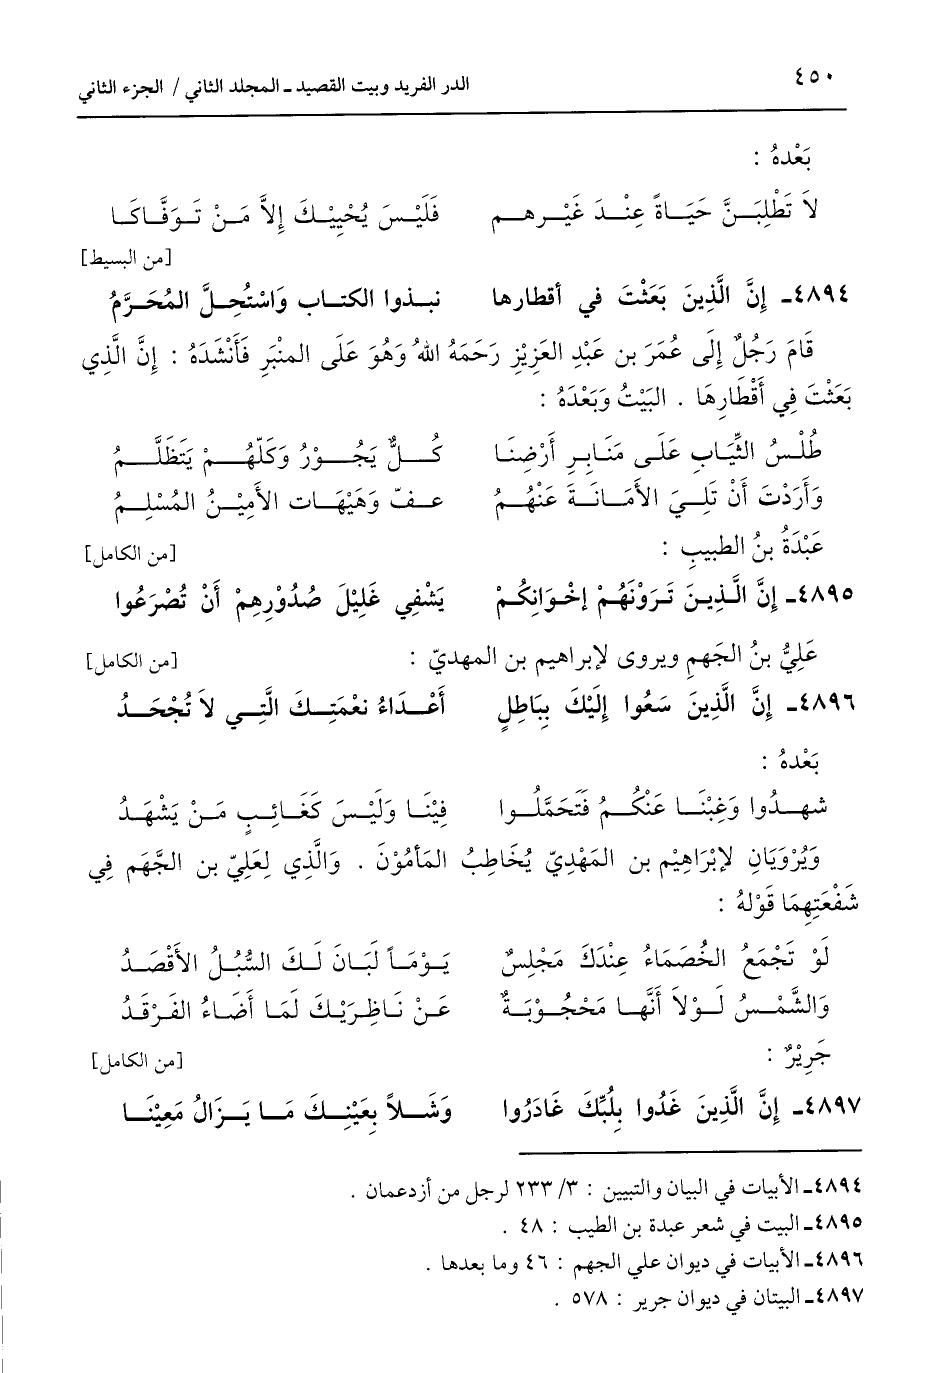 ٤٥٠ الدر الفريد وبيت القصيد ـ المجلد الثاني / الجزء الثاني
بَعْدهُ :
لاَ تَطْلِبَنَّ حَيَاةً عِنْدَ غَيْرهم فَلَيْسَ يُحْيِيْكَ إلاَّ مَنْ تَوَفَّاكَا
[من البسيط]
٤٨٩٤ـ إنَّ الَّذِينَ بَعَثْتَ في أقطارها نبذوا الكتاب وَاسْتُحِلَّ المُحَرَّمُ
قَامَ رَجُلٌ إلَى عُمَرَ بن عَبْدِ العَزِيْزِ رَحَمَهُ اللهُ وَهُوَ عَلَى المنْبَرِ فَأَنْشَدَهُ : إنَّ الَّذِي
بَعَثْتَ فِي أَقْطَارِهَا . البَيْتُ وَبَعْدَهُ :
طُلْسُ الثِّيَابِ عَلَى مَنَابِرِ أَرْضِنَا كُلٌّ يَجُوْرُ وَكَلّهُمْ يَتَظَلَّمُ
وَأَرَدْتَ أَنْ تَلِيَ الأَمَانَةَ عَنْهُمُ عفّ وَهَيْهَات الأَمِيْنُ المُسْلِمُ
عَبْدَةُ بنُ الطبيبِ : [من الكامل]
٤٨٩٥ـ إنَّ الَّذِينَ تَرَوْنَهُمْ إخْوَانكُمْ يَشْفِي غَلِيْلَ صُدُوْرِهِمْ أَنْ تُصْرَعُوا
عَلِيُّ بنُ الجَهمِ ويروى لإبراهيم بن المهديّ : [من الكامل]
٤٨٩٦ـ إنَّ الَّذِينَ سَعُوا إلَيْكَ بِبَاطِلٍ أَعْدَاءُ نعْمَتِكَ الَّتِي لاَ تُجْحَدُ
بَعْدهُ :
شهدُوا وَغِبْنَا عَنْكُمُ فَتَحَمَّلُوا فِيْنَا وَلَيْسَ كَغَائِبٍ مَنْ يَشْهَدُ
وَيُرْوَيَانِ لإبْرَاهِيْم بن المَهْدِيّ يُخَاطِبُ المَأمُوْنَ . وَالَّذِي لِعَلِيّ بن الجَّهَم فِي
شَفْعَتِهِمَا قَوْلهُ :
لَوْ تَجْمَعُ الخُصَمَاءُ عِنْدَكَ مَجْلِسٌ يَوْمَاً لَبَانَ لَكَ السُّبُلُ الأَقْصَدُ
وَالشَّمْسُ لَوْلاَ أَنَّهَا مَحْجُوْبَةٌ عَنْ نَاظِرِيْكَ لَمَا أَضَاءُ الفَرْقَدُ
جَرِيْرٌ : [من الكامل]
٤٨٩٧ـ إنَّ الَّذِينَ غَدُوا بِلُبِّكَ غَادَرُوا وَشَلاً بِعَيْنِكَ مَا يَزَالُ مَعِيْنَا
٤٨٩٤ـ الأبيات في البيان والتبيين : ٣/ ٢٣٣ لرجل من أزدعمان .
٤٨٩٥ـ البيت في شعر عبدة بن الطيب : ٤٨ .
٤٨٩٦ـ الأبيات في ديوان علي الجهم : ٤٦ وما بعدها .
٤٨٩٧ـ البيتان في ديوان جرير : ٥٧٨ .